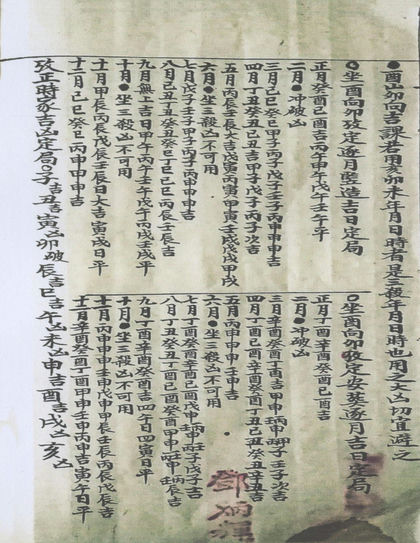 ●酉山卯向吉課君用亥卯未年月日時者是三殺年月日時也用之大凶切宜避之
○坐酉向卯攷定逐月豎造吉日定局
正月癸酉己酉吉丙午甲午戊午壬午平
二月●冲破凶
三月己巳癸巳甲子丙子戊子壬子丙申甲申吉
四月丁丑癸丑乙丑吉甲子戊子丙子次吉
五月丙辰壬辰大吉戊寅丙寅甲寅壬戌戊戌甲戌
六月●坐三殺凶不可用
七月戊子壬子丙子丙申壬申吉
八月己丑丁丑癸丑丁巳己巳丙辰壬辰吉
九月無上吉日甲午丙午壬午戊午丙戌壬戌平
十月●坐三殺凶不可用
十一月甲辰丙辰戊辰壬辰日大吉寅戌日平
十二月己巳癸巳丙申甲申吉
○坐酉向卯攷定安葬逐月吉日定局
正月丁酉辛酉癸酉己酉吉
二月●冲破凶
三月辛酉癸酉丁酉吉甲申丙申壬子次吉
四月丁酉己酉辛酉癸酉丁丑乙丑癸丑辛丑吉
五月丙申甲申壬申吉
六月●坐三殺凶不可用
七月丁酉癸酉辛酉己酉戊申丙申壬子戊子吉
八月丁丑癸丑丁酉己酉癸酉甲申壬申丙辰吉
九月丁酉辛酉癸酉吉四午日四寅日平
十月●坐三殺凶不可用
十一月丙申甲申壬申戊申甲辰壬辰丙辰戊辰吉
十二月辛酉癸酉丁酉甲申壬申丙申吉寅午日平
攷正時家吉凶定局○子吉丑吉寅凶卯破辰吉巳吉午凶未凶申吉酉吉戌凶亥凶